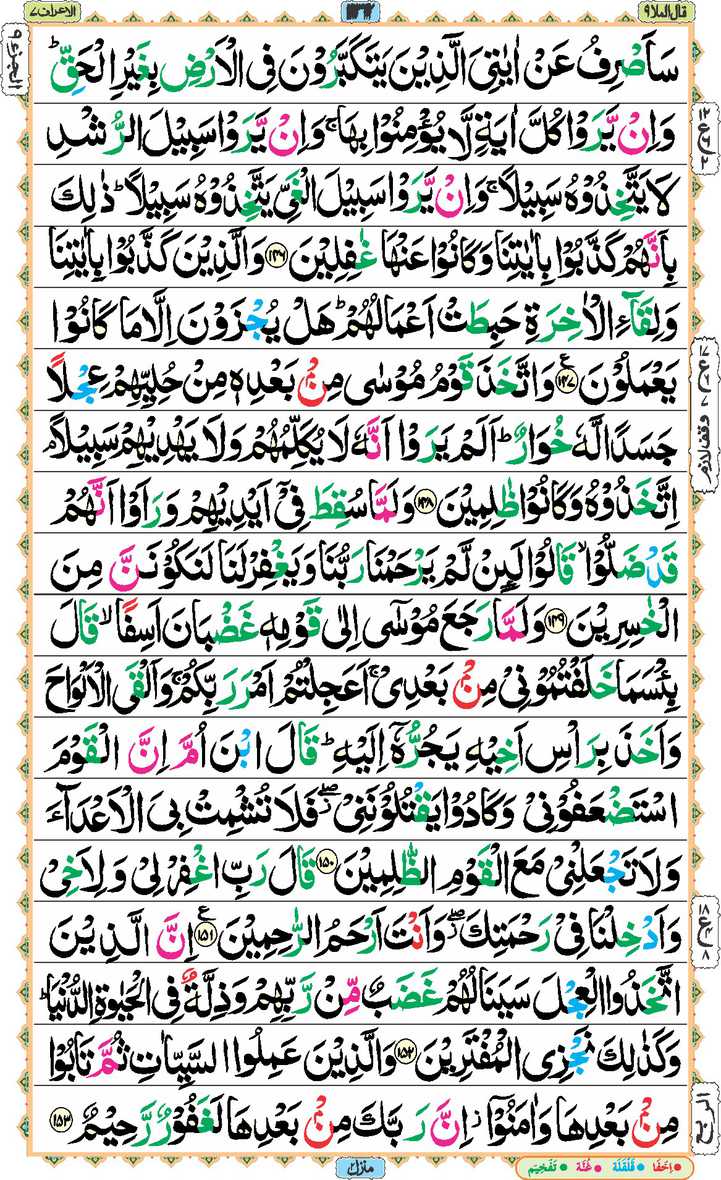 الاعراف ۷
قال الملا ۹
سَاَصْرِفُ عَنْ اٰيٰتِيَ الَّذِيْنَ يَتَكَبَّرُوْنَ فِي الْاَرْضِ بِغَيْرِ الْحَقِّ ؕ
وَاِنْ يَّرَوْا كُلَّ اٰيَةٍ لَّا يُؤْمِنُوْا بِهَا ۚ وَاِنْ يَّرَوْا سَبِيْلَ الرُّشْدِ
لَا يَتَّخِذُوْهُ سَبِيْلًا ۚ وَاِنْ يَّرَوْا سَبِيْلَ الْغَيِّ يَتَّخِذُوْهُ سَبِيْلًا ؕ ذٰلِكَ
بِاَنَّهُمْ كَذَّبُوْا بِاٰيٰتِنَا وَكَانُوْا عَنْهَا غٰفِلِيْنَ ۝۱۴۶ وَالَّذِيْنَ كَذَّبُوْا بِاٰيٰتِنَا
وَلِقَآءِ الْاٰخِرَةِ حَبِطَتْ اَعْمَالُهُمْ ؕ هَلْ يُجْزَوْنَ اِلَّا مَا كَانُوْا
يَعْمَلُوْنَ ۝۱۴۷ ع وَاتَّخَذَ قَوْمُ مُوْسٰى مِنْۢ بَعْدِهٖ مِنْ حُلِيِّهِمْ عِجْلًا
جَسَدًا لَّهٗ خُوَارٌ ؕ اَلَمْ يَرَوْا اَنَّهٗ لَا يُكَلِّمُهُمْ وَلَا يَهْدِيْهِمْ سَبِيْلًا ۘ
اِتَّخَذُوْهُ وَكَانُوْا ظٰلِمِيْنَ ۝۱۴۸ وَلَمَّا سُقِطَ فِيْۤ اَيْدِيْهِمْ وَرَاَوْا اَنَّهُمْ
قَدْ ضَلُّوْا ۙ قَالُوْا لَئِنْ لَّمْ يَرْحَمْنَا رَبُّنَا وَيَغْفِرْ لَنَا لَنَكُوْنَنَّ مِنَ
الْخٰسِرِيْنَ ۝۱۴۹ وَلَمَّا رَجَعَ مُوْسٰۤى اِلٰى قَوْمِهٖ غَضْبَانَ اَسِفًا ۙ قَالَ
بِئْسَمَا خَلَفْتُمُوْنِيْ مِنْۢ بَعْدِيْ ۚ اَعَجِلْتُمْ اَمْرَ رَبِّكُمْ ۚ وَاَلْقَى الْاَلْوَاحَ
وَاَخَذَ بِرَاْسِ اَخِيْهِ يَجُرُّهٗۤ اِلَيْهِ ؕ قَالَ ابْنَ اُمَّ اِنَّ الْقَوْمَ
اسْتَضْعَفُوْنِيْ وَكَادُوْا يَقْتُلُوْنَنِيْ ۖ فَلَا تُشْمِتْ بِيَ الْاَعْدَآءَ
وَلَا تَجْعَلْنِيْ مَعَ الْقَوْمِ الظّٰلِمِيْنَ ۝۱۵۰ قَالَ رَبِّ اغْفِرْ لِيْ وَلِاَخِيْ
وَاَدْخِلْنَا فِيْ رَحْمَتِكَ ۖ وَاَنْتَ اَرْحَمُ الرّٰحِمِيْنَ ۝۱۵۱ ع اِنَّ الَّذِيْنَ
اتَّخَذُوا الْعِجْلَ سَيَنَالُهُمْ غَضَبٌ مِّنْ رَّبِّهِمْ وَذِلَّةٌ فِي الْحَيٰوةِ الدُّنْيَا ؕ
وَكَذٰلِكَ نَجْزِي الْمُفْتَرِيْنَ ۝۱۵۲ وَالَّذِيْنَ عَمِلُوا السَّيِّاٰتِ ثُمَّ تَابُوْا
مِنْۢ بَعْدِهَا وَاٰمَنُوْۤا ۡ اِنَّ رَبَّكَ مِنْۢ بَعْدِهَا لَغَفُوْرٌ رَّحِيْمٌ ۝۱۵۳
وقف لازم
الربع
منزل ۲
اِخْفَا
قَلْقَلَة
غُنَّة
تَفْخِيْم